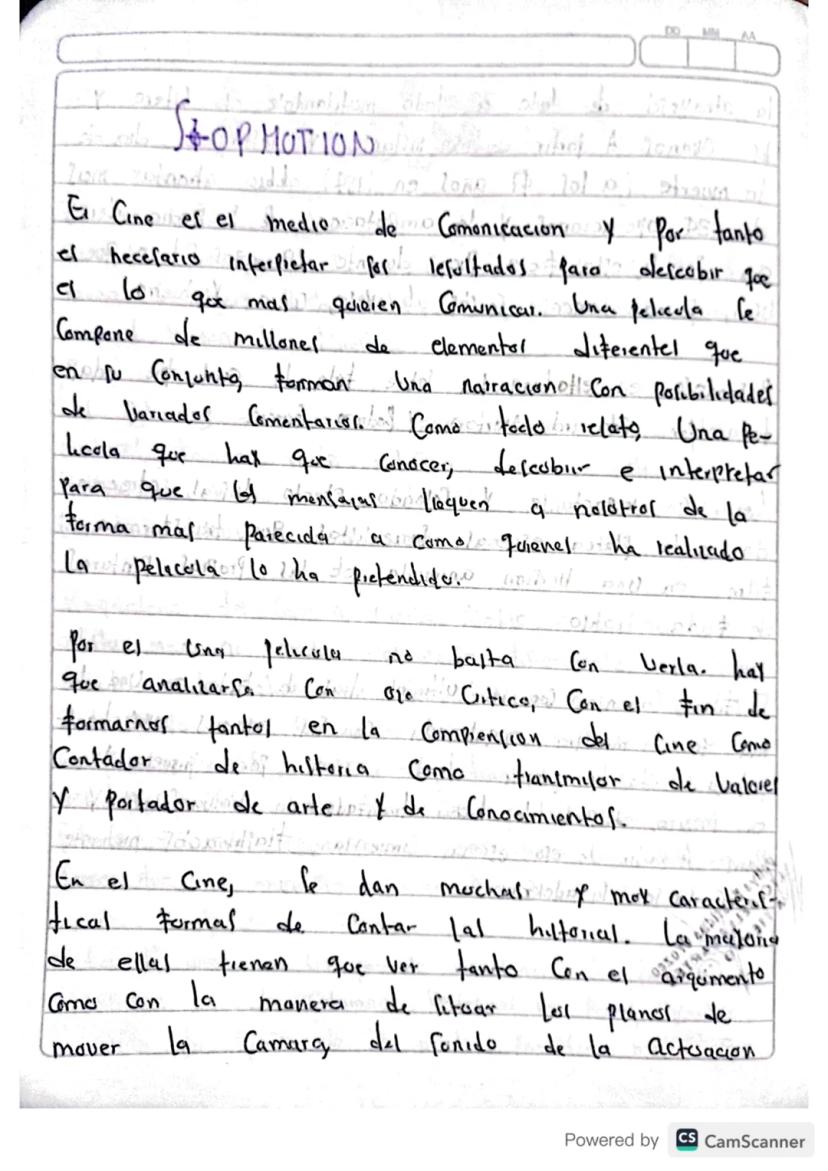 DD MM AA
StOP MOTION
El Cine es el medio de Comonicacion y por tanto
es necesario interpretar los resultados para descobir que
es lo que mas quieren Comunicar. Una pelicula se
Compone de millones de elementos diferentes que
en su Conjunto, forman Una narracion Con posibilidades
de Variados Comentarios. Como todo relato, Una Pe-
licola que hay que conocer, descobrir e interpretar
para que los mensajas lleguen a nosotros de la
forma mas parecida a como quienes ha realizado
La pelicola lo ha pretendido.
Por es Una pelicula no basta Con Verla. hay
que analizarse Con ojo Critico, Con el fin de
formarnos tantos en la Comprension del Cine Como
Contador de historia Como transmisor de Valores
Y Portador de arte y de Conocimientos.
En el Cine, Se dan muchas y moy caracteris-
ticas formas de Contar las historias. La mayoria
de ellas tienen que Ver tanto Con el argumento
Como con la manera de Sitoar los planos de
mover la Camara, del Sonido de la actuacion
Powered by CS CamScanner